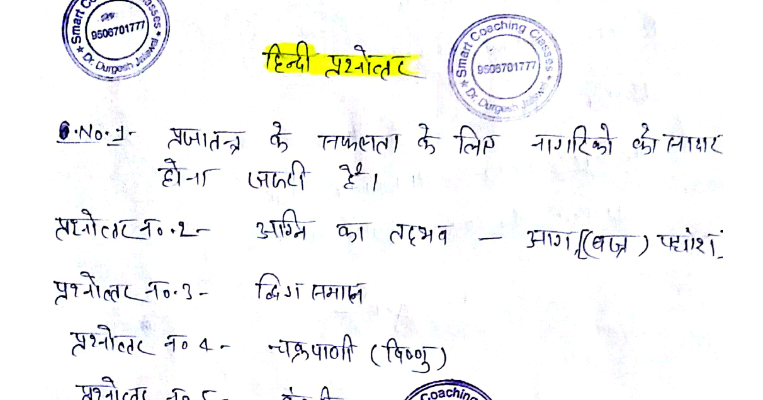 Smart Coaching Classes
9506701777
Dr. Durgesh Jaiswal
हिन्दी प्रश्नोत्तर
Smart Coaching Classes
9506701777
Dr. Durgesh Jaiswal
Q.No.1- प्रजातन्त्र के सफलता के लिए नागरिको को साक्षर
होना जरूरी है।
प्रश्नोत्तर न0.2- अग्नि का तद्भव — आग (वज्र)
प्रश्नोत्तर न0.3- द्विगु समास
प्रश्नोत्तर न0 4- चक्रपाणी (विष्णु)
प्रश्नोत्तर न0
Coaching